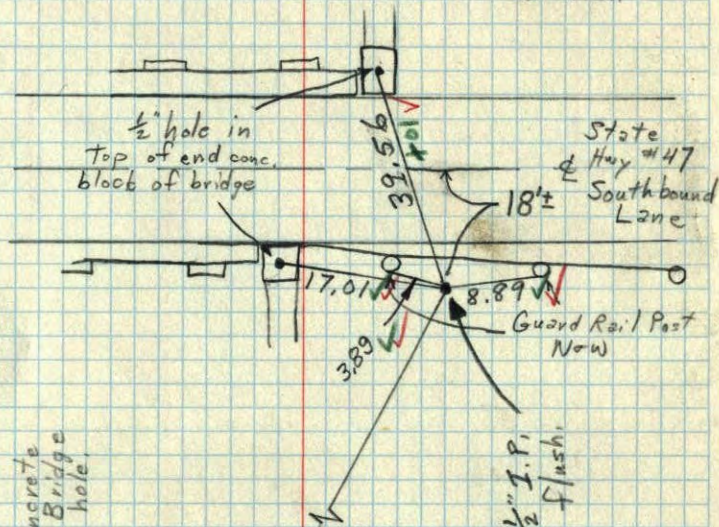 ½" hole in
Top of end conc.
block of bridge
39.56
State
℄ Hwy #47
Southbound
Lane
18'±
17.01
8.89
3.89
Guard Rail Post
New
½" I.P.
flush.
Bridge
hole.